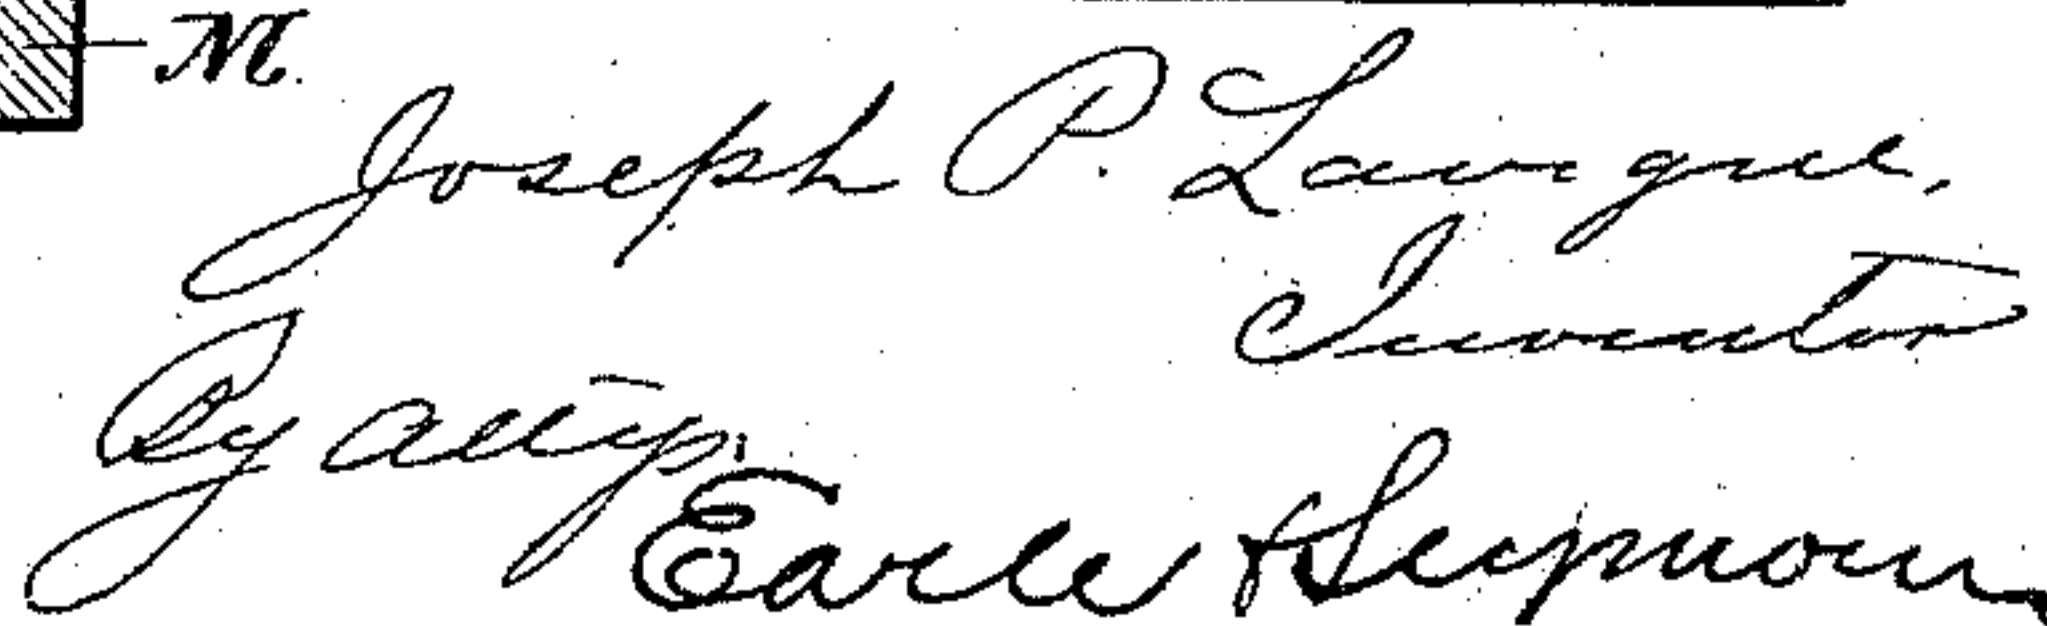 M.
Joseph P. Lavigne,
Inventor
By atty.
Earle & Seymour